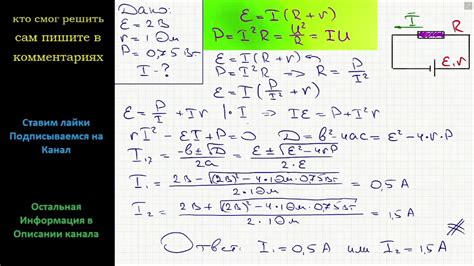 кто смог решить
сам пишите в
комментариях
Ставим лайки
Подписываемся на
Канал
Остальная
Информация в
Описании канала
Дано:
ℰ = 2В
r = 1 Ом
P = 0,75 Вт
I - ?
ℰ = I(R + r)
P = I²R = U²/R = IU
ℰ = I(R + r)
P = I²R ⇒ R = P/I²
ℰ = I(P/I² + r)
ℰ = P/I + Ir | · I ⇒ Iℰ = P + I²r
rI² - ℰI + P = 0 D = b² - 4ac = ℰ² - 4·r·P
I₁,₂ = (-b ± √D)/2a = (ℰ ± √(ℰ² - 4rP))/(2·ℰ)
I₁ = (2В - √((2В)² - 4·1Ом·0,75Вт))/(2·1Ом) = 0,5 А
I₂ = (2В + √((2В)² - 4·1Ом·0,75Вт))/(2·1Ом) = 1,5 А
Ответ: I₁ = 0,5 А или I₂ = 1,5 А
I
R
ℰ, r